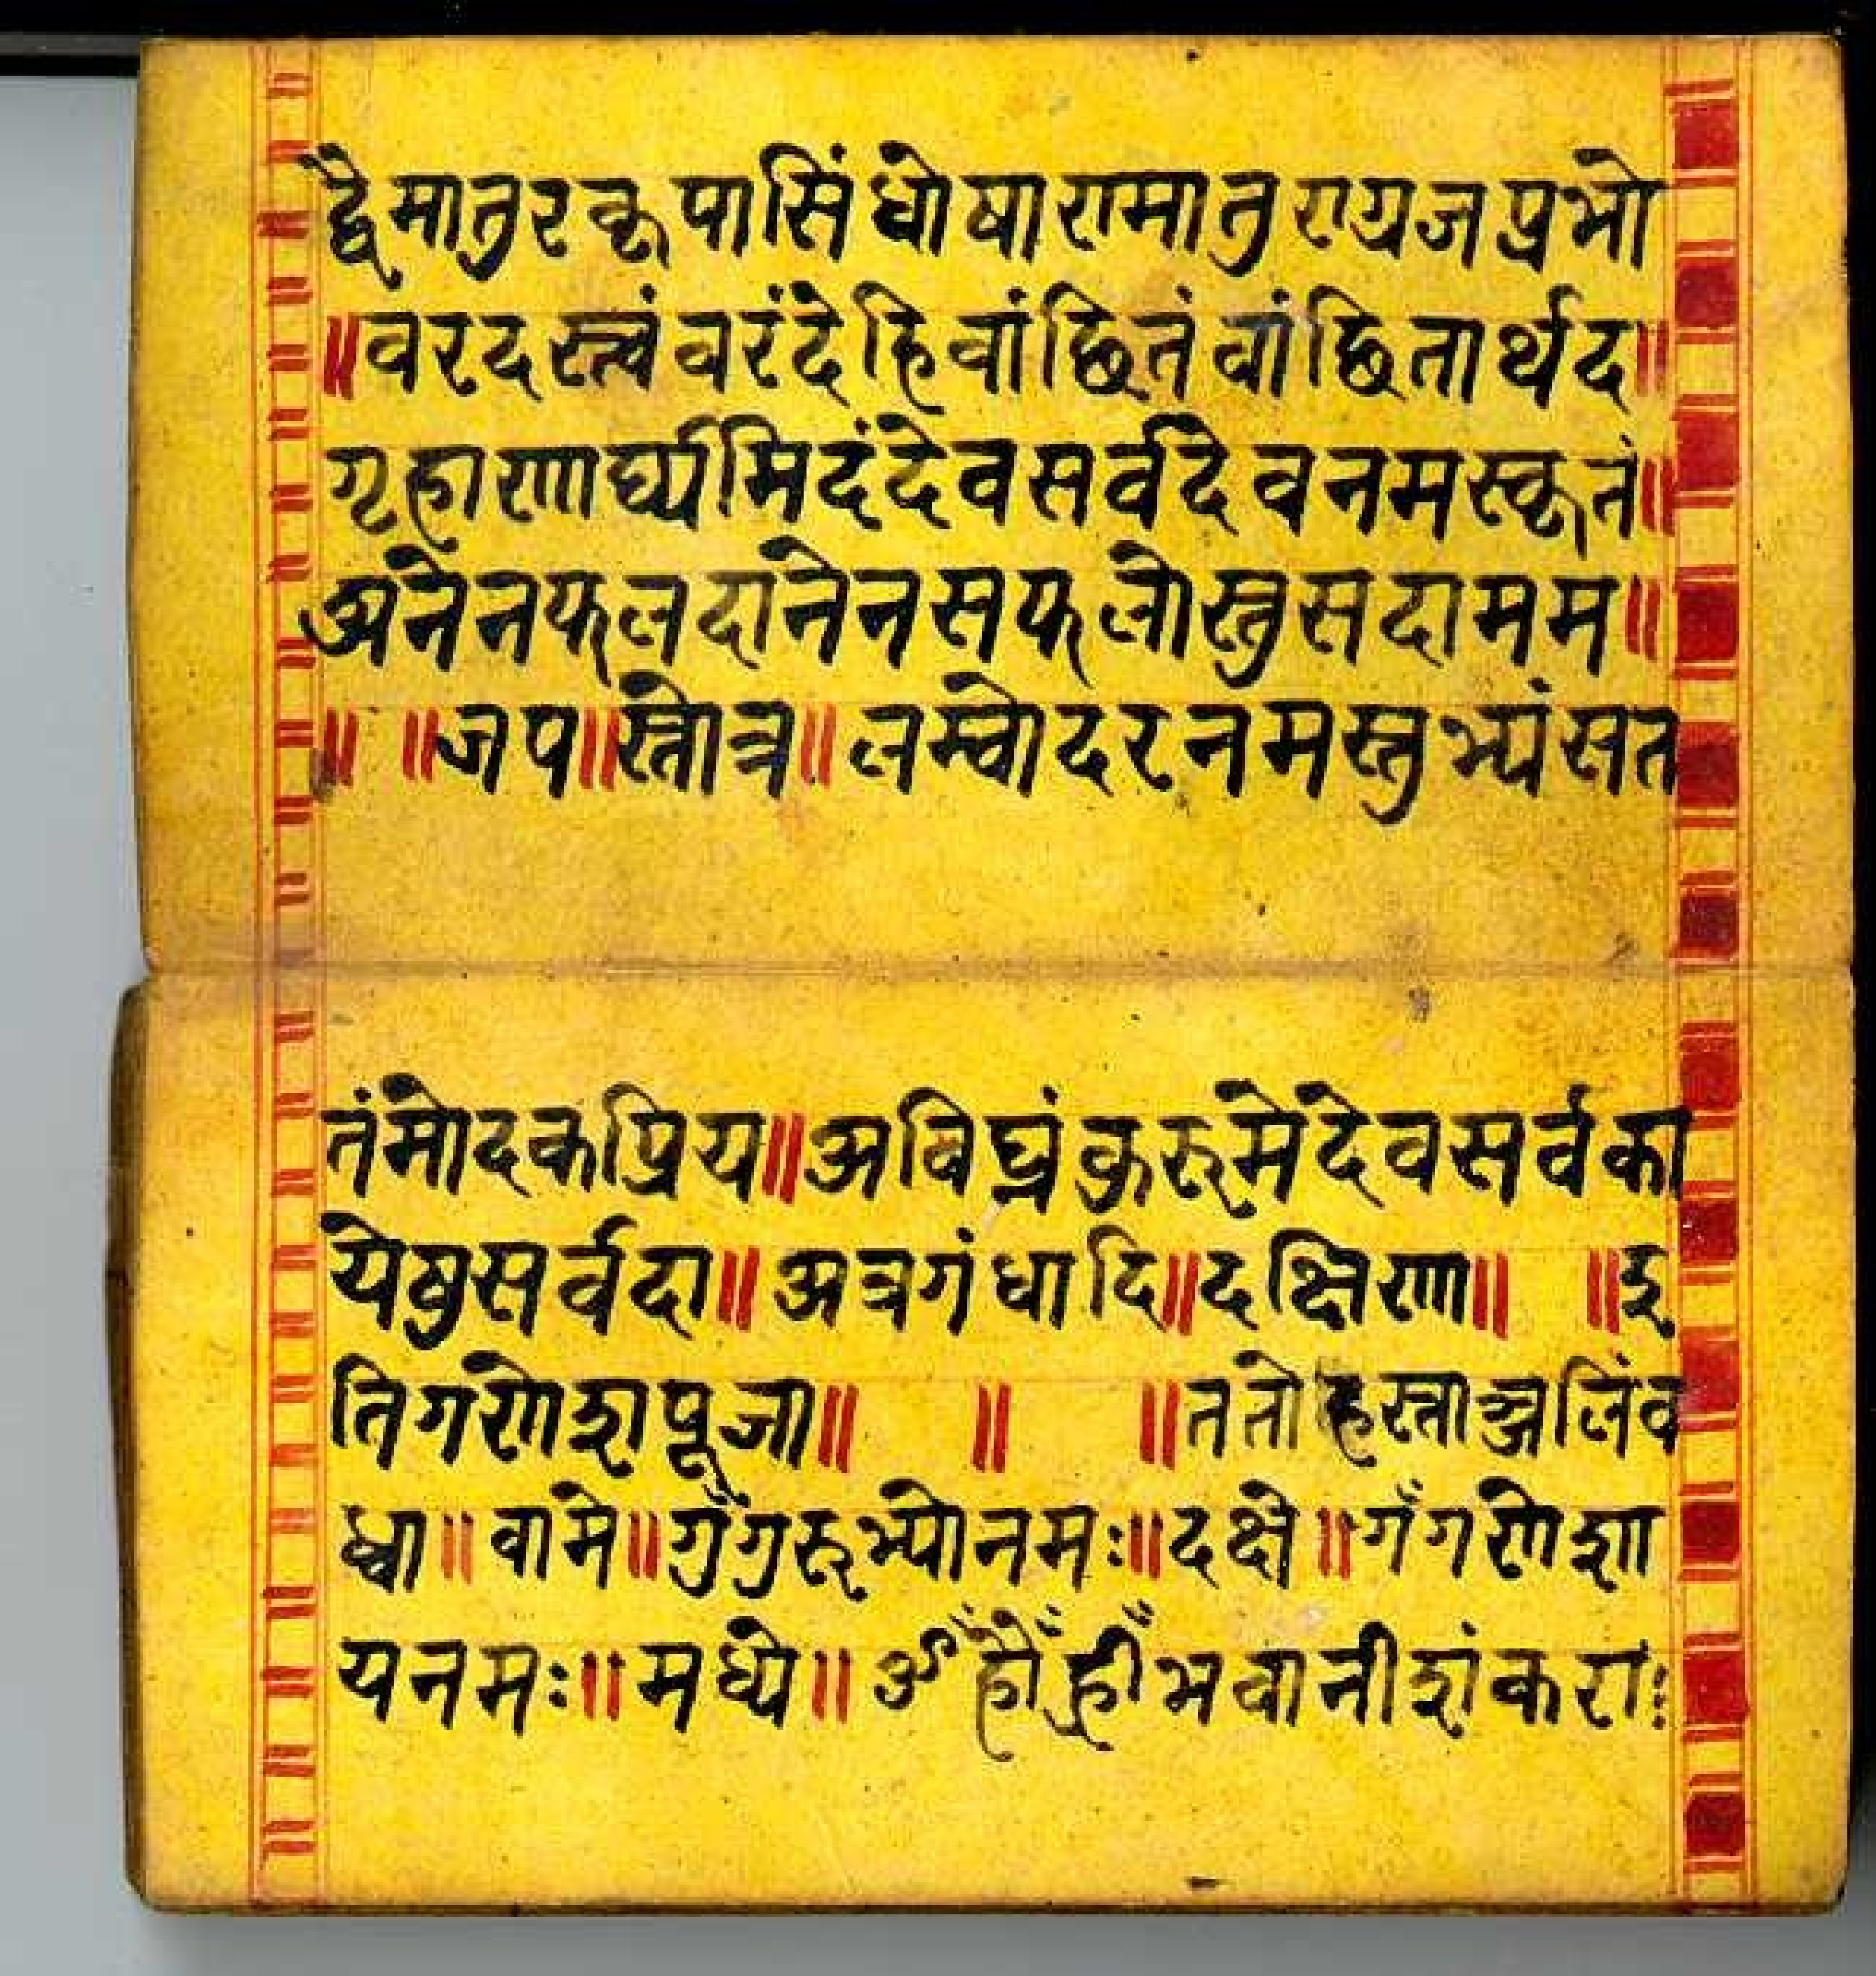 द्वैमातुरकृपासिंधोषारामातुराग्रजप्रभो
॥वरदस्त्वंवरंदेहिवांछितंवांछितार्थद॥
गृहाणार्घ्यमिदंदेवसर्वदेवनमस्कृतं॥
अनेनफलदानेनसफलोस्तुसदामम॥
॥ ॥जप॥स्तोत्र॥ लम्वोदरनमस्तुभ्यंसत
तंमोदकप्रिय॥अविघ्नंकुरुमेदेवसर्वका
येषुसर्वदा॥ अत्रगंधादि॥दक्षिणा॥ ॥इ
तिगणेशपूजा॥ ॥ ॥ततोहस्ताञ्जलिंव
ध्वा॥वामे॥गुँगुरुभ्योनमः॥दक्षे॥गँगणेशा
यनमः॥मध्ये॥ ॐ हौँ ह्रीँ भवानीशंकरा